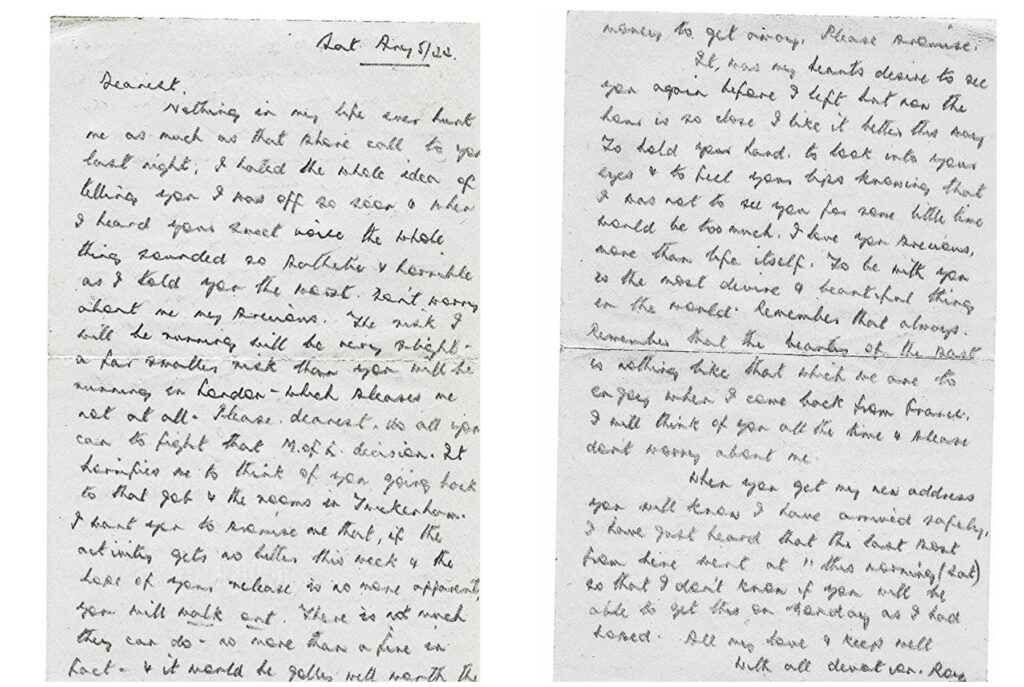 Sat Aug 5/44.
Dearest.
Nothing in my life ever hurt
me as much as that phone call to you
last night. I hated the whole idea of
telling you I was off so soon & when
I heard your sweet voice the whole
thing sounded so pathetic & horrible
as I told you the worst. Don't worry
about me my precious. The risk I
will be running will be very slight -
a far smaller risk than you will be
running in London - which pleases me
not at all. Please, dearest, do all you
can to fight that M.of L. decision. It
horrifies me to think of you going back
to that job & the rooms in Twickenham.
I want you to promise me that, if the
activity gets no better this week & the
hope of your release is no more apparent,
you will walk out. There is not much
they can do - no more than a fine in
fact - & it would be well worth the
money to get away. Please promise.
It was my hearts desire to see
you again before I left but now the
hour is so close I like it better this way.
To hold your hand, to look into your
eyes & to feel your lips knowing that
I was not to see you for some little time
would be too much. I love you precious,
more than life itself. To be with you
is the most devine & beautiful thing
in the world. Remember that always.
Remember that the beauty of the past
is nothing like that which we are to
enjoy when I come back from France.
I will think of you all the time & please
don't worry about me.
When you get my new address
you will know I have arrived safely.
I have just heard that the last post
from here went at 11 this morning (Sat)
so that I don't know if you will be
able to get this on Monday as I had
hoped. All my love & keep well
With all devotion. Roy